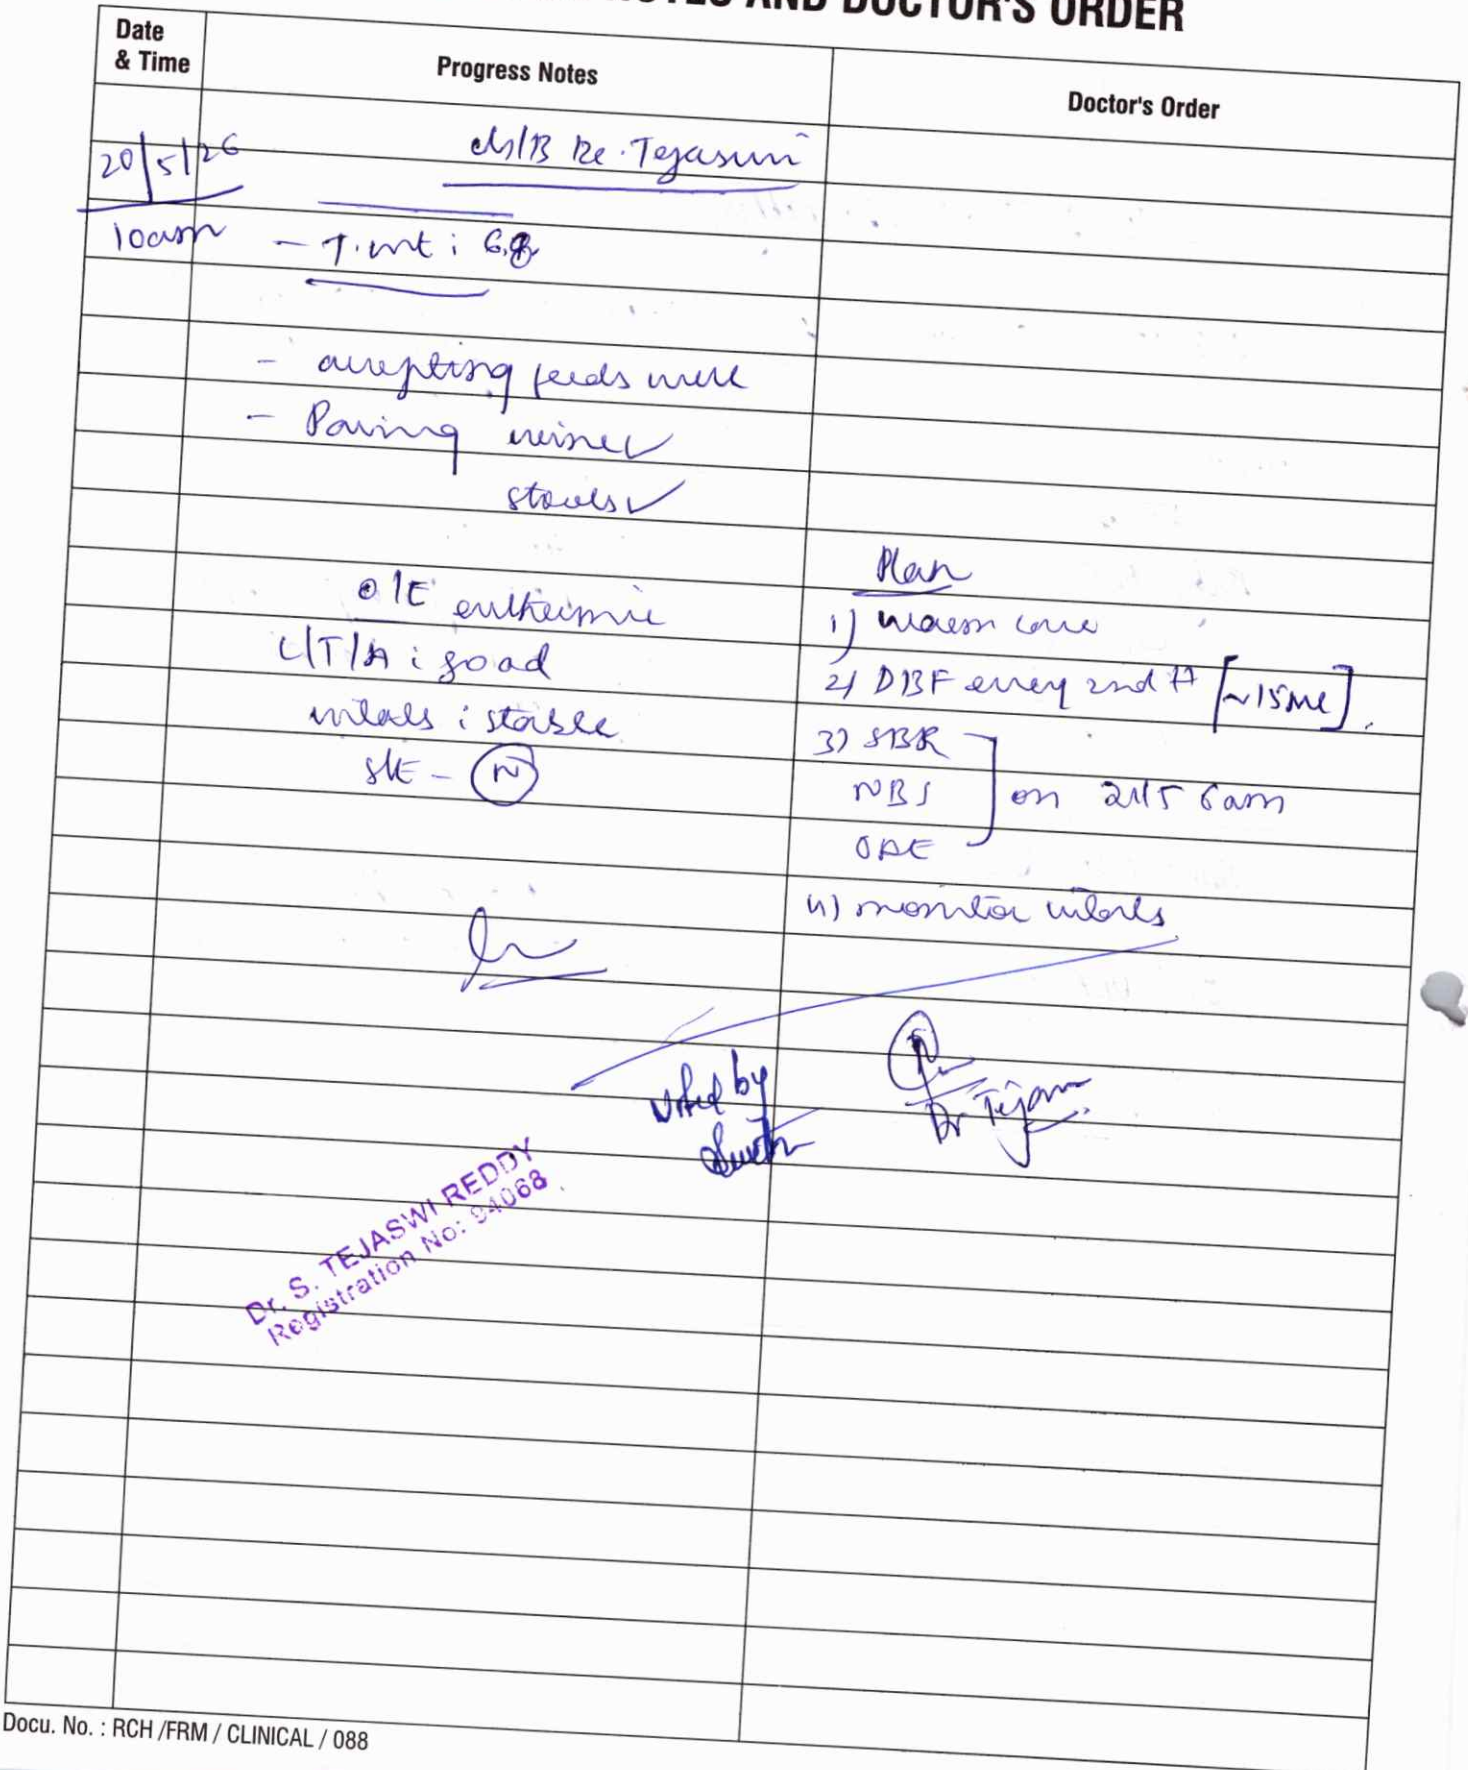 AND DOCTOR'S ORDER
Date
& Time
Progress Notes
Doctor's Order
20/5/26
10am
- T.wt :
- accepting feeds well
- Passing urine ✓
stools ✓
O/E euthermic
C/T/A : good
vitals : stable
S/E - (N)
Plan
1) warm care
2) DBF every 2nd H [~15ml].
3) SBR
NBS
OAE
on 21/5 6am
4) monitor vitals
Noted by
Dr Tejaswi
Dr. S. TEJASWI REDDY
Registration No: 94068
Docu. No. : RCH /FRM / CLINICAL / 088